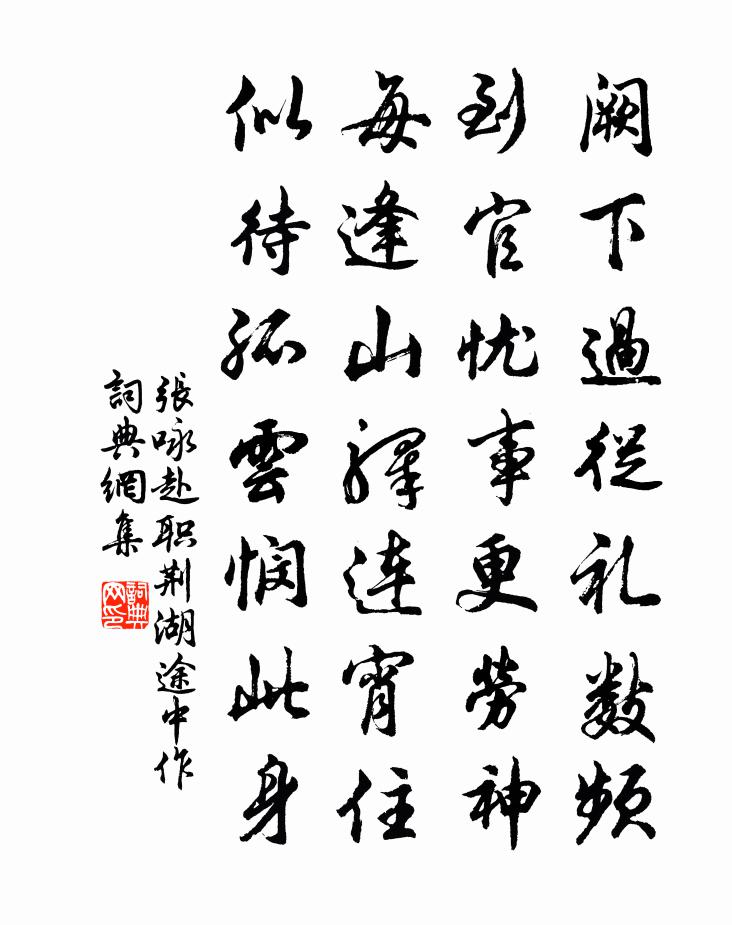 阙下過從礼数频
到官忧事更劳神
每逢山驛連宵住
似待孤雲悯此身
張咏赴职荆湖途中作
詞典網集
詞典网印